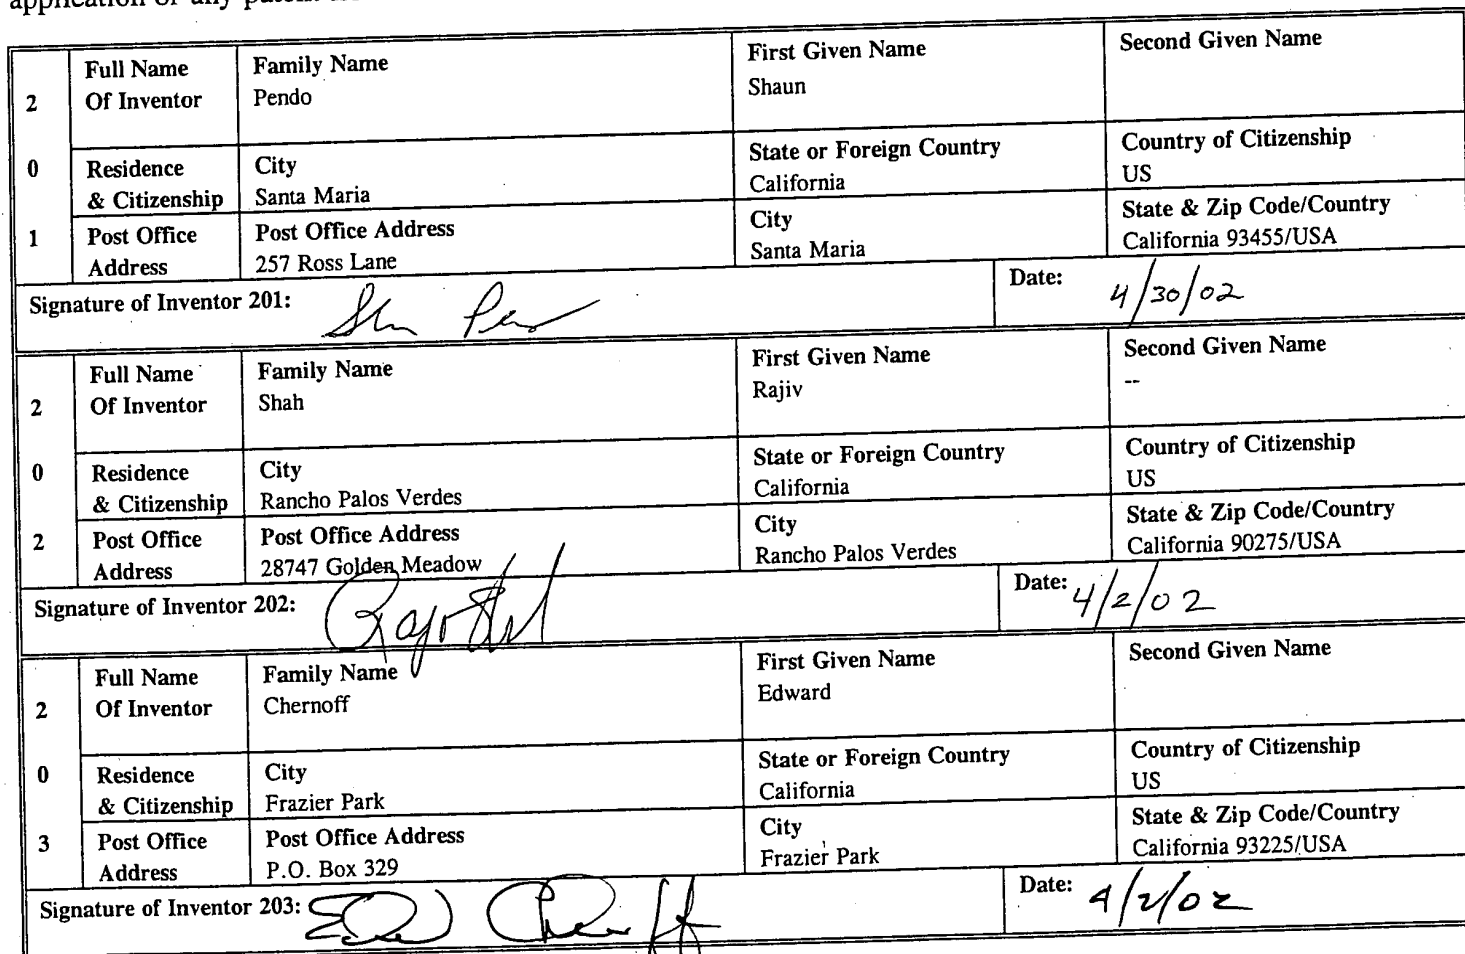 application or any patent
2 0 1
Full Name Of Inventor
Family Name
Pendo
First Given Name
Shaun
Second Given Name
Residence & Citizenship
City
Santa Maria
State or Foreign Country
California
Country of Citizenship
US
Post Office Address
Post Office Address
257 Ross Lane
City
Santa Maria
State & Zip Code/Country
California 93455/USA
Signature of Inventor 201:
Date: 4/30/02
2 0 2
Full Name Of Inventor
Family Name
Shah
First Given Name
Rajiv
Second Given Name
--
Residence & Citizenship
City
Rancho Palos Verdes
State or Foreign Country
California
Country of Citizenship
US
Post Office Address
Post Office Address
28747 Golden Meadow
City
Rancho Palos Verdes
State & Zip Code/Country
California 90275/USA
Signature of Inventor 202:
Date: 4/2/02
2 0 3
Full Name Of Inventor
Family Name
Chernoff
First Given Name
Edward
Second Given Name
Residence & Citizenship
City
Frazier Park
State or Foreign Country
California
Country of Citizenship
US
Post Office Address
Post Office Address
P.O. Box 329
City
Frazier Park
State & Zip Code/Country
California 93225/USA
Signature of Inventor 203:
Date: 4/2/02